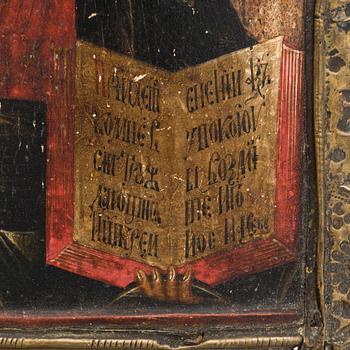 ПРИИДЕТ
КО МНѢ В
СИ ТРУЖ
ДАЮЩИС
И ѠБРЕМ
ЕНЕНИИ
УПОКОЮ
ВЫ ВОЗМ
ИТЕ ИГО
МОЕ НА СЕБЕ